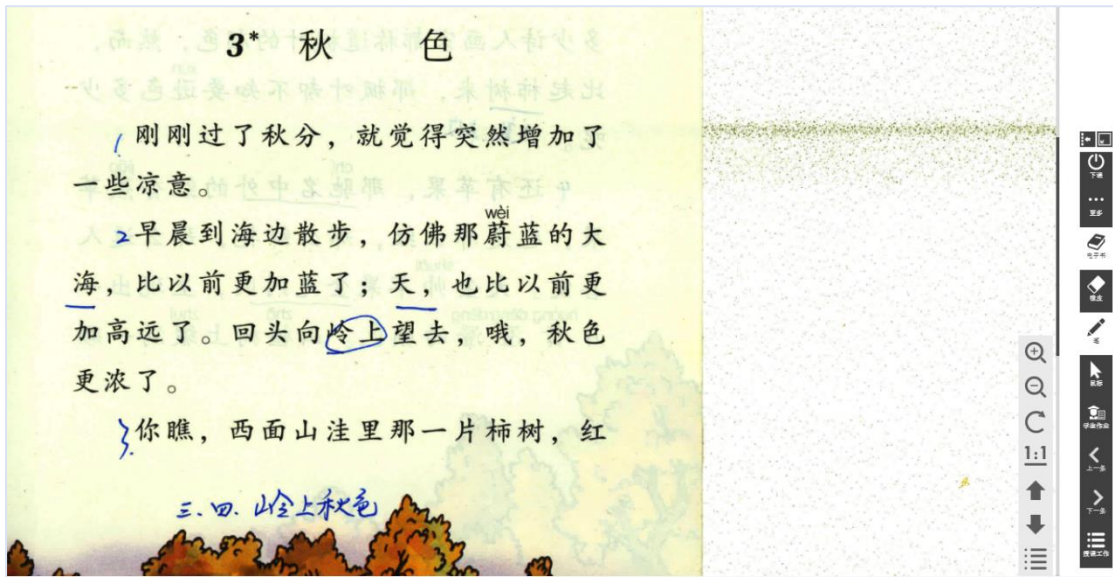 3* 秋 色
1 刚刚过了秋分，就觉得突然增加了
一些凉意。
wèi
2 早晨到海边散步，仿佛那蔚蓝的大
海，比以前更加蓝了；天，也比以前更
加高远了。回头向岭上望去，哦，秋色
更浓了。
3 你瞧，西面山洼里那一片柿树，红
三.四. 山岭上秋色
1:1
下课
更多
电子书
橡皮
笔
鼠标
学生作业
上一条
下一条